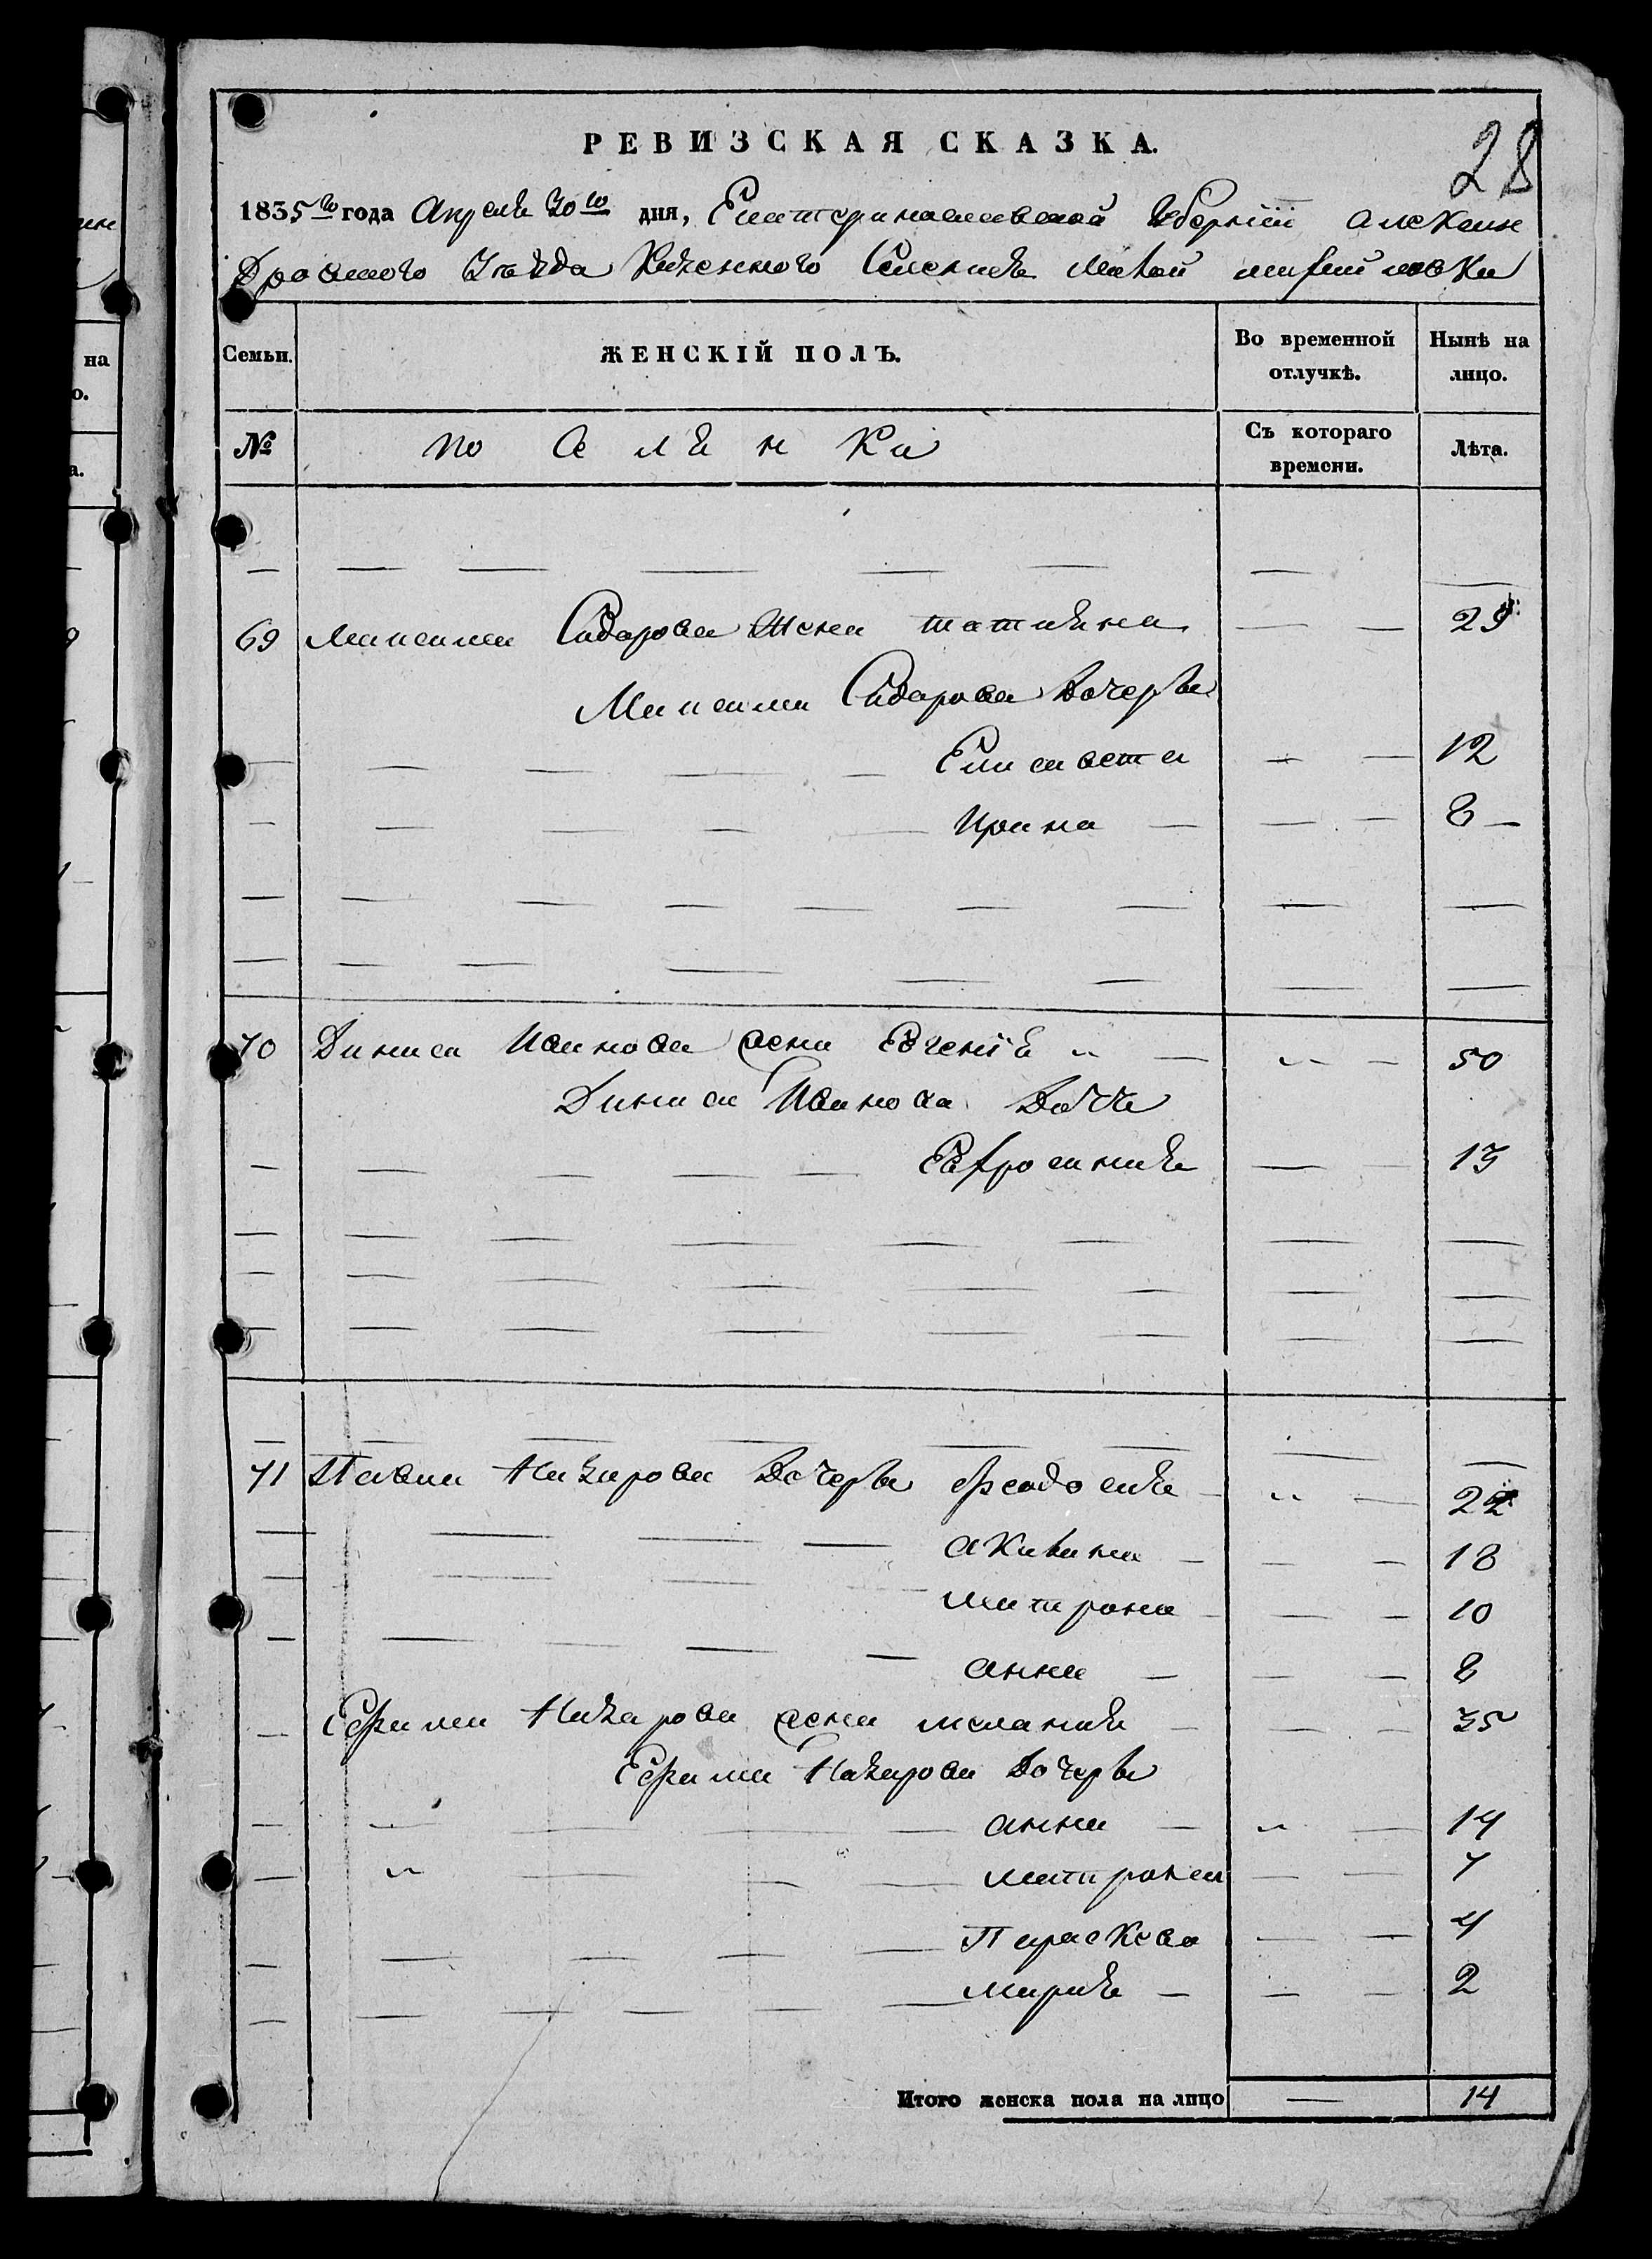 28
РЕВИЗСКАЯ СКАЗКА.
1835го года Апреля 30го дня, Екатеринославской Губернiи Алексан
Дровского Уезда Казенного Селения
Семьи. ЖЕНСКІЙ ПОЛЪ. Во временной отлучкѣ. Нынѣ на лицо.
№ по Селянки Съ котораго времени. Лѣта.
69 Максима Сидорова Жена татияна — — 29
Максима Сидорова Дочерьи
Елисавета — — 12
Ирина — — — 8 —
70 Диниса Иванова жена Евгенiя — 50
Диниса Иванова Дочь
Ефросиния — 13
71 Павла Назарова Дочерьи Феодосия — 22
акилина — — — 18
матрона — — — 10
анна — — — 8
Ефима Назарова жена мелания — — — 35
Ефима Назарова Дочерьи
анна — — 14
матрона — — 7
Параскева — — 4
мария — — — 2
Итого женска пола на лицо — 14
на
о.
а.